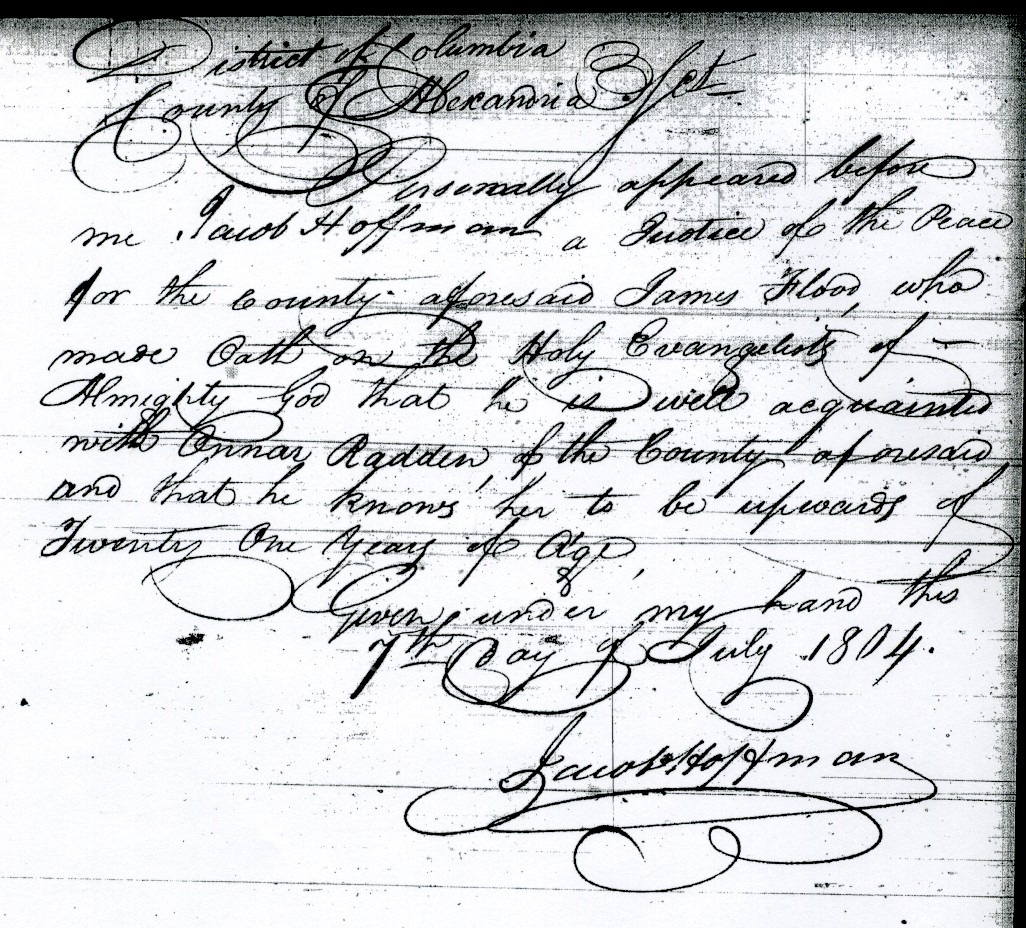 District of Columbia
County of Alexandria } Sct
Personally appeared before
me Jacob Hoffman a Justice of the Peace
for the County aforesaid James Flood, who
made Oath on the Holy Evangelists of —
Almighty God that he is well acquainted
with Ennar Radden, of the County aforesaid
and that he knows her to be upwards of
Twenty One Years of Age,
Given under my hand this
7th Day of July 1804.
Jacob Hoffman